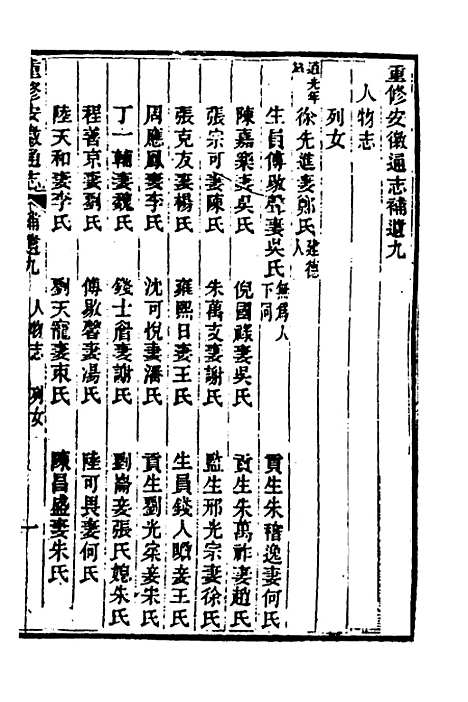 重修安徽通志補遺九
人物志
列女
道光年
徐先進妻鄭氏建德人
生員傅敭聲妻吳氏無為人下同
貢生朱稽逸妻何氏
陳嘉樂妻吳氏 倪國祿妻吳氏 貢生朱萬祚妻趙氏
張宗可妻陳氏 朱萬支妻謝氏 監生邢光宗妻徐氏
張克友妻楊氏 雍熙日妻王氏 生員錢人瞻妾王氏
周應鳳妻李氏 沈可悅妻潘氏 貢生劉光宗妾朱氏
丁一輔妻魏氏 錢士 妻謝氏 劉崙妾張氏媳朱氏
程善京妻劉氏 傅敭磬妻湯氏 陸可畏妻何氏
陸天和妻李氏 劉天寵妻束氏 陳昌盛妾朱氏
重修安徽通志 補遺九 人物志 列女 一